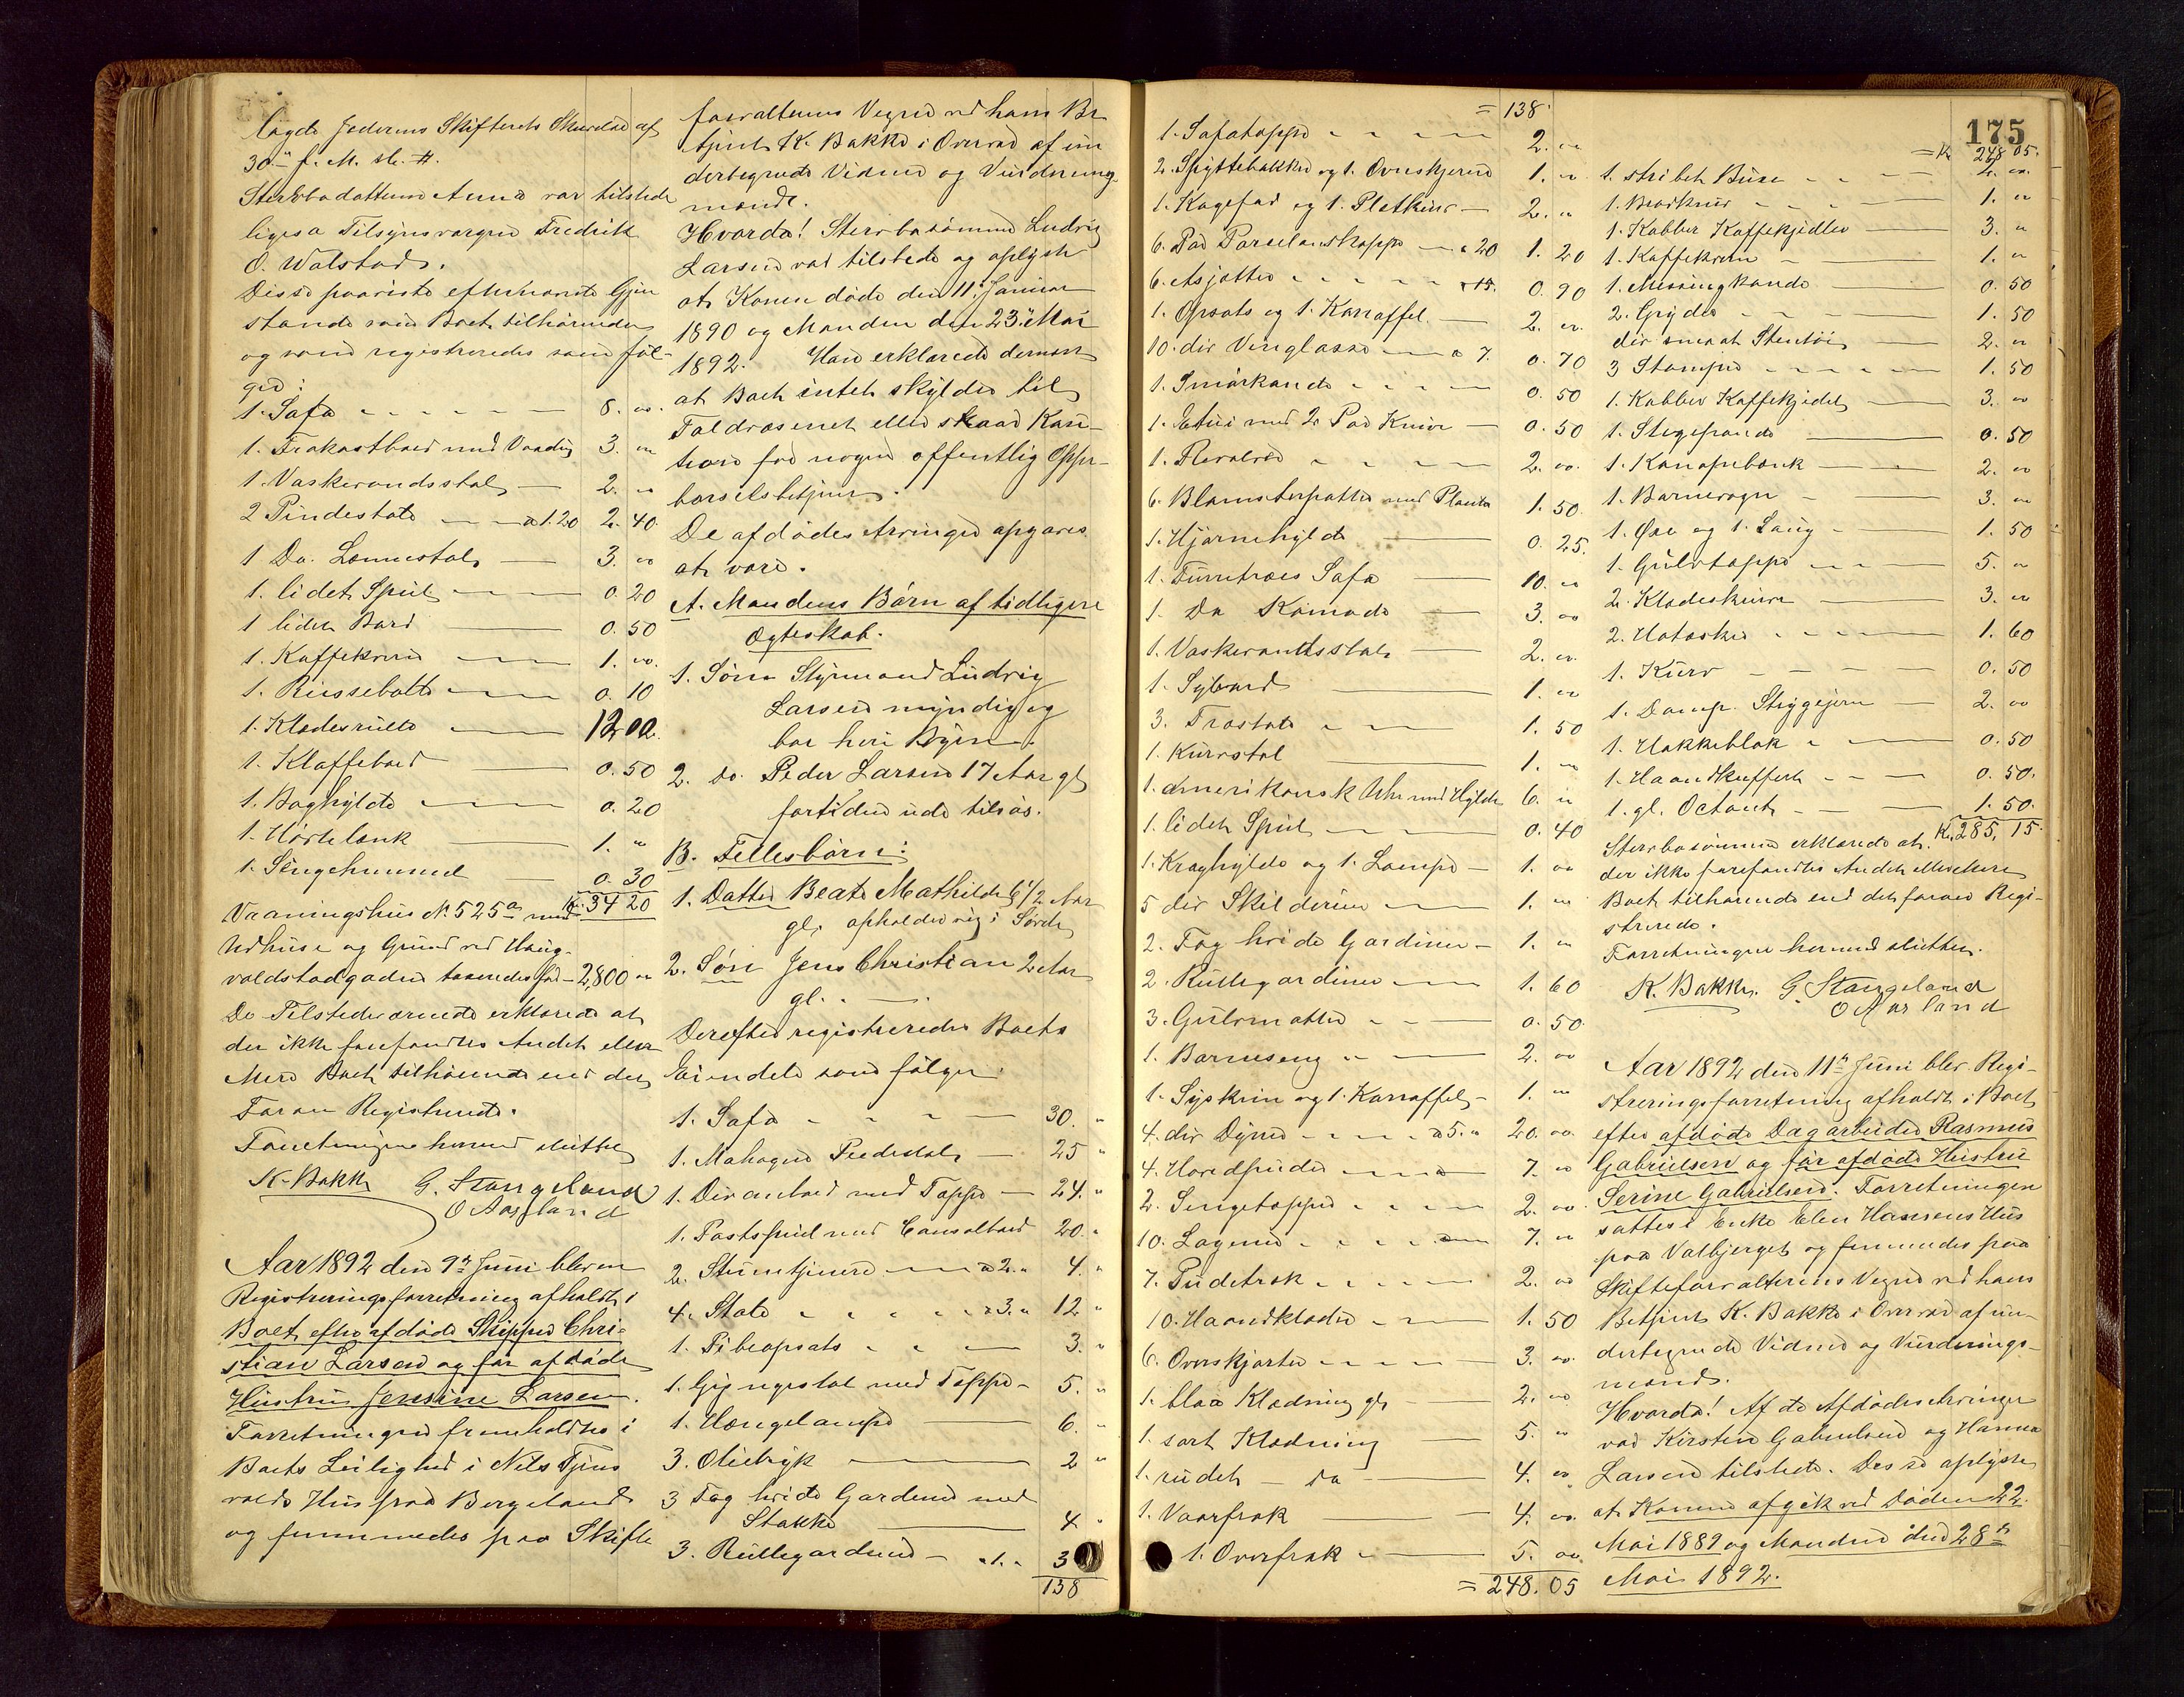 lagde Jederens Skifterets Skrivelse af
30te f. M. No. 4.
Stervbodatteren Anna var tilstede
ligesa Tilsynsvergen Fredrik
O. Walstad.
Disse paaviste efternævnte Gjen
stande som Boet tilhørende
og som registreredes som føl-
ger:
1. Sofa - - - - - 8. 00.
1. Frokostbord med Voxdug 3. "
1. Vaskevandsstol — 2. "
2 Pindestole — a 1.20 2. 40.
1 Do. Lænnestol — 3. 00
1. lidet Speil — 0. 20
1 lidet Bord — 0. 50
1. Kaffekvern — 1. 00.
1. Reissebolt — 0. 10
1. Klædesrulle — 12 00.
1. Klaffebord — 0. 50
1. Boghylde — 0. 20
1. Hörtebænk — 1. "
1. Sengehimmel — 0. 30
Kr. 34 20
Vaaningshus No. 525a med
Udhuse og Grund ved Haug-
valdstadgaden taxeredes for - 2,800 "
De Tilstedeværende erklærede at
der ikke forefandtes Andet eller
Mere Boet tilhørende end det
Foran Registrerede.
Forretningen hermed sluttet
K. Bakke G. Stangeland
O Aasland
Aar 1892 den 9de Juni blev en
Registreringsforretning afholdt i
Boet efter afdøde Skipper Chri-
stian Larsen og før afdøde
Hustru Jensine Larsen.
Forretningen fremholdtes i
Boets Leilighed i Nils Tjens
volds Hus paa Bergeland
og fremmedes paa Skifte
forvalterens Vegne ved hans Be
tjent K. Bakke i Overvær af un
dertegnede Vidner og Vurderings
mænd.
Hvorda! Stervbosønnen Ludvig
Larsen var tilstede og oplyste
at Konen døde den 11te Januar
1890 og Manden den 23de Mai
1892. Han erklærede dernæst
at Boet intet skylder til
Toldvæsenet eller staar Kau-
tion for nogen offentlig Oppe-
børselsbetjent.
De afdødes Arvinger opgaves
at være.
A. Mandens Børn af tidligere
Ægteskab.
1. Sønn Styrmand Ludvig
Larsen myndig og
bor her i Byen.
2. do. Peder Larsen 17 Aar gl
fortiden ude tilsøs.
B. Fellesbørn:
1. Datter Beate Mathilde 6 1/2 Aar
gl. opholder sig i Sørch
2. Søn Jens Christian 2 Aar
gl. —
Derefter registreredes Boets
Eiendele som følger:
1. Sofa - - - — 30. "
1. Mahogne Peidestal — 25 "
1. Divanbord med Teppe — 24. "
1. Postspeil med Consolbord 20. "
2. Steintjinere — a 2. " 4. "
4. Stole - - - a 3. " 12 "
1. Pibeopsats - - — 3. "
1. Gyngestol med Teppe - 5. "
1. Hængelampe — 6. "
3. Olietryk — 2 "
3 Fag hvide Gardiner med
Stakke — 4 "
3. Rullegardiner — a 1. " 3
138
= 138
1. Sofateppe - - - — 2. "
2. Spyttebakker og 1. Ovnskjerm 1. " 
1. Kagefad og 1. Platkurv — 2. "
6. Par Porcelænskopper — a 20 1. 20
6. Asjetter - - - - a 15. 0. 90
1. Opsats og 1. Karaffel. — 2. "
10. div Vinglasse — a 7. 0. 70
1. Smørkande - - - — 0. 50
1. Etui med 2 Par Knive — 0. 50
1. Revolver - - - — 2. 00.
6. Blomsterpotter med Planter 1. 50
1. Hjørnehylde — 0. 25.
1. Furetræes Sofa — 10. "
1. Do Komode — 3. 00
1. Vaskevandsstol — 2. "
1. Sybord — 1. "
3. Træstole - - — 1. 50
1. Kurvstol — 1. "
1. Amerikansk Uhr med Hylde 6. "
1. lidet Speil — 0. 40
1. Kroghylde og 1. Lampe — 1. 00
5 div Skilderier — 1. "
2. Fag hvide Gardiner — 1. "
2. Rullegardiner — 1. 60
3. Gulvmatter - — 0. 50
1. Barneseng - — 2. 00
1. Syskrin og 1. Karaffel — 1. "
4. div Dyner - - - a 5. " 20. 00.
4. Hovedpuder — 7. 00
2. Sengetepper - - — 2. 00.
10. Lagener - - - — 7. "
7. Pudetræk - - — 2. 00
10. Haandklæder — 1. 50
6. Overskjorter - - — 3. 00.
1. blaa Klædning gl. — 2. 00
1. sort Klædning — 5. "
1. rudet do — 4. 00
1. Vaarfrak — 4. 00.
1. Overfrak - — 5. 00
= 248. 05
175
= Kr. 248 05.
1. stribet Buxe - - — 2. 00.
1. Brødkniv - - - 1. "
1. Kobber Kaffekjedler — 3. "
1. Kaffekvern - — 1. "
1. Messingkande — 0. 50
2. Gryder - - — 1. 50
div smaat Stentøi — 2. "
3 Stamper - - - — 1. 50
1. Kobber Kaffekjedel — 3. 00
1. Stegepande — 0. 50
1. Kanapebænk — 2. 00
1. Barnevogn - — 3. "
1. Øxe og 1. Saug — 1. 50
1. Gulvteppe - - — 5. "
2. Klædeskurve — 3. "
2. Hatæsker - - — 1. 60
1. Kurv - - — 0. 50
1. Damp. Strygejern — 2. 00
1. Hakkeblok - — 0. 50
1. Haandkuffert - - — 0. 50.
1. gl. Octant - — 1. 50.
Kr. 285, 15.
Stervbosønnen erklærede at
der ikke forefandtes Andet eller Mere
Boet tilhørende end det foran Regi-
strerede.
Forretningen hermed sluttet.
K. Bakke. G. Stangeland
O Aasland
Aar 1892 den 11te Juni blev Regi-
streringsforretning afholdt i Boet
efter afdøde Dagarbeider Rasmus
Gabrielsen og før afdøde Hustru
Serine Gabrielsen. Forretningen
sattes i Enke Elen Hansens Hus
paa Valbjerget og fremmedes paa
Skifteforvalterens Vegne ved hans
Betjent K. Bakke i Overvær af un-
dertegnede Vidner og Vurderings-
mænd.
Hvorda! Af de Afdødes Arvinger
var Kirsten Gabrielsen og Hanna
Larsen tilstede. Disse oplyste
at Konen afgik ved Døden 22.
Mai 1889 og Manden den 28de
Mai 1892.